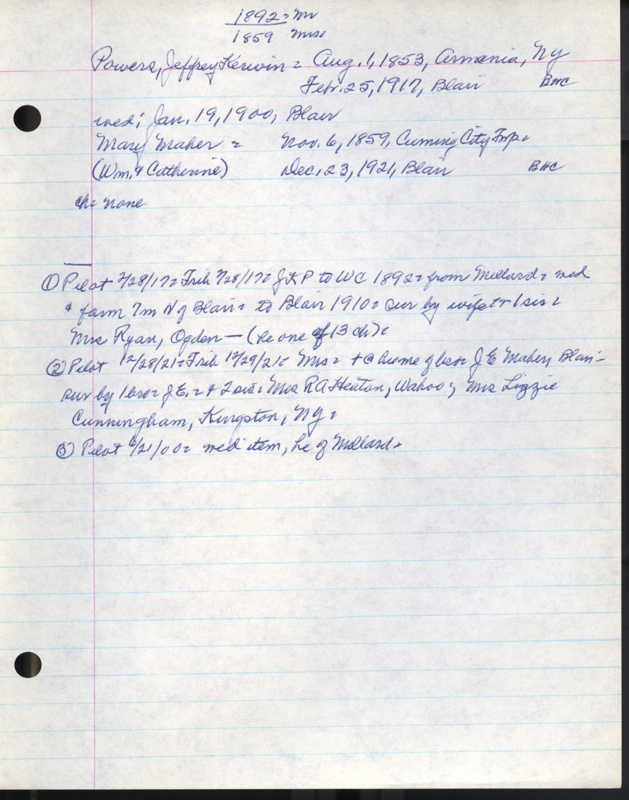 1892 = Mr
1859 Mrs
Powers, Jeffrey Kerwin = Aug. 1, 1853, Armenia, Ny
Feb. 25, 1917, Blair BMC
wed; Jan. 19, 1900, Blair
Mary Maher = Nov. 6, 1859, Cuming City Twp.
(Wm. & Catherine) Dec. 23, 1921, Blair BMC
ch: none
① Pilot 2/28/17 = Trib 2/28/17 = JKP to WC 1892 = from Millard = wed
& farm 7m N of Blair = to Blair 1910 = sur by wife + 1 sis =
Mrs Ryan, Ogden — (he one of 13 ch) =
② Pilot 12/28/21 = Trib 12/29/21 = Mrs = home of bro = J E Maher, Blair =
sur by 1 bro = J E. = & 2 sis = Mrs R A Heaton, Wahoo; Mrs Lizzie
Cunningham, Kingston, Ny =
③ Pilot /21/00 = wed item, he of Millard =